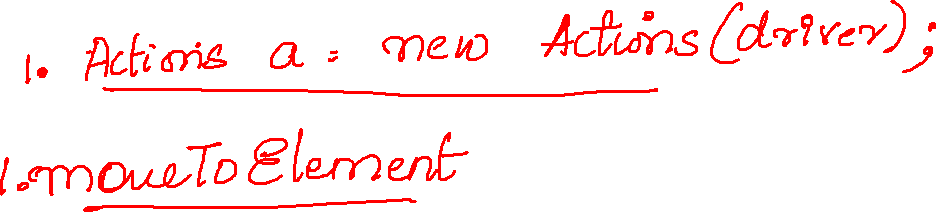 1. Actions a = new Actions(driver);
1. moveToElement